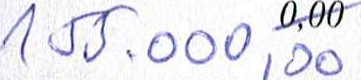 155.000,00
0,00